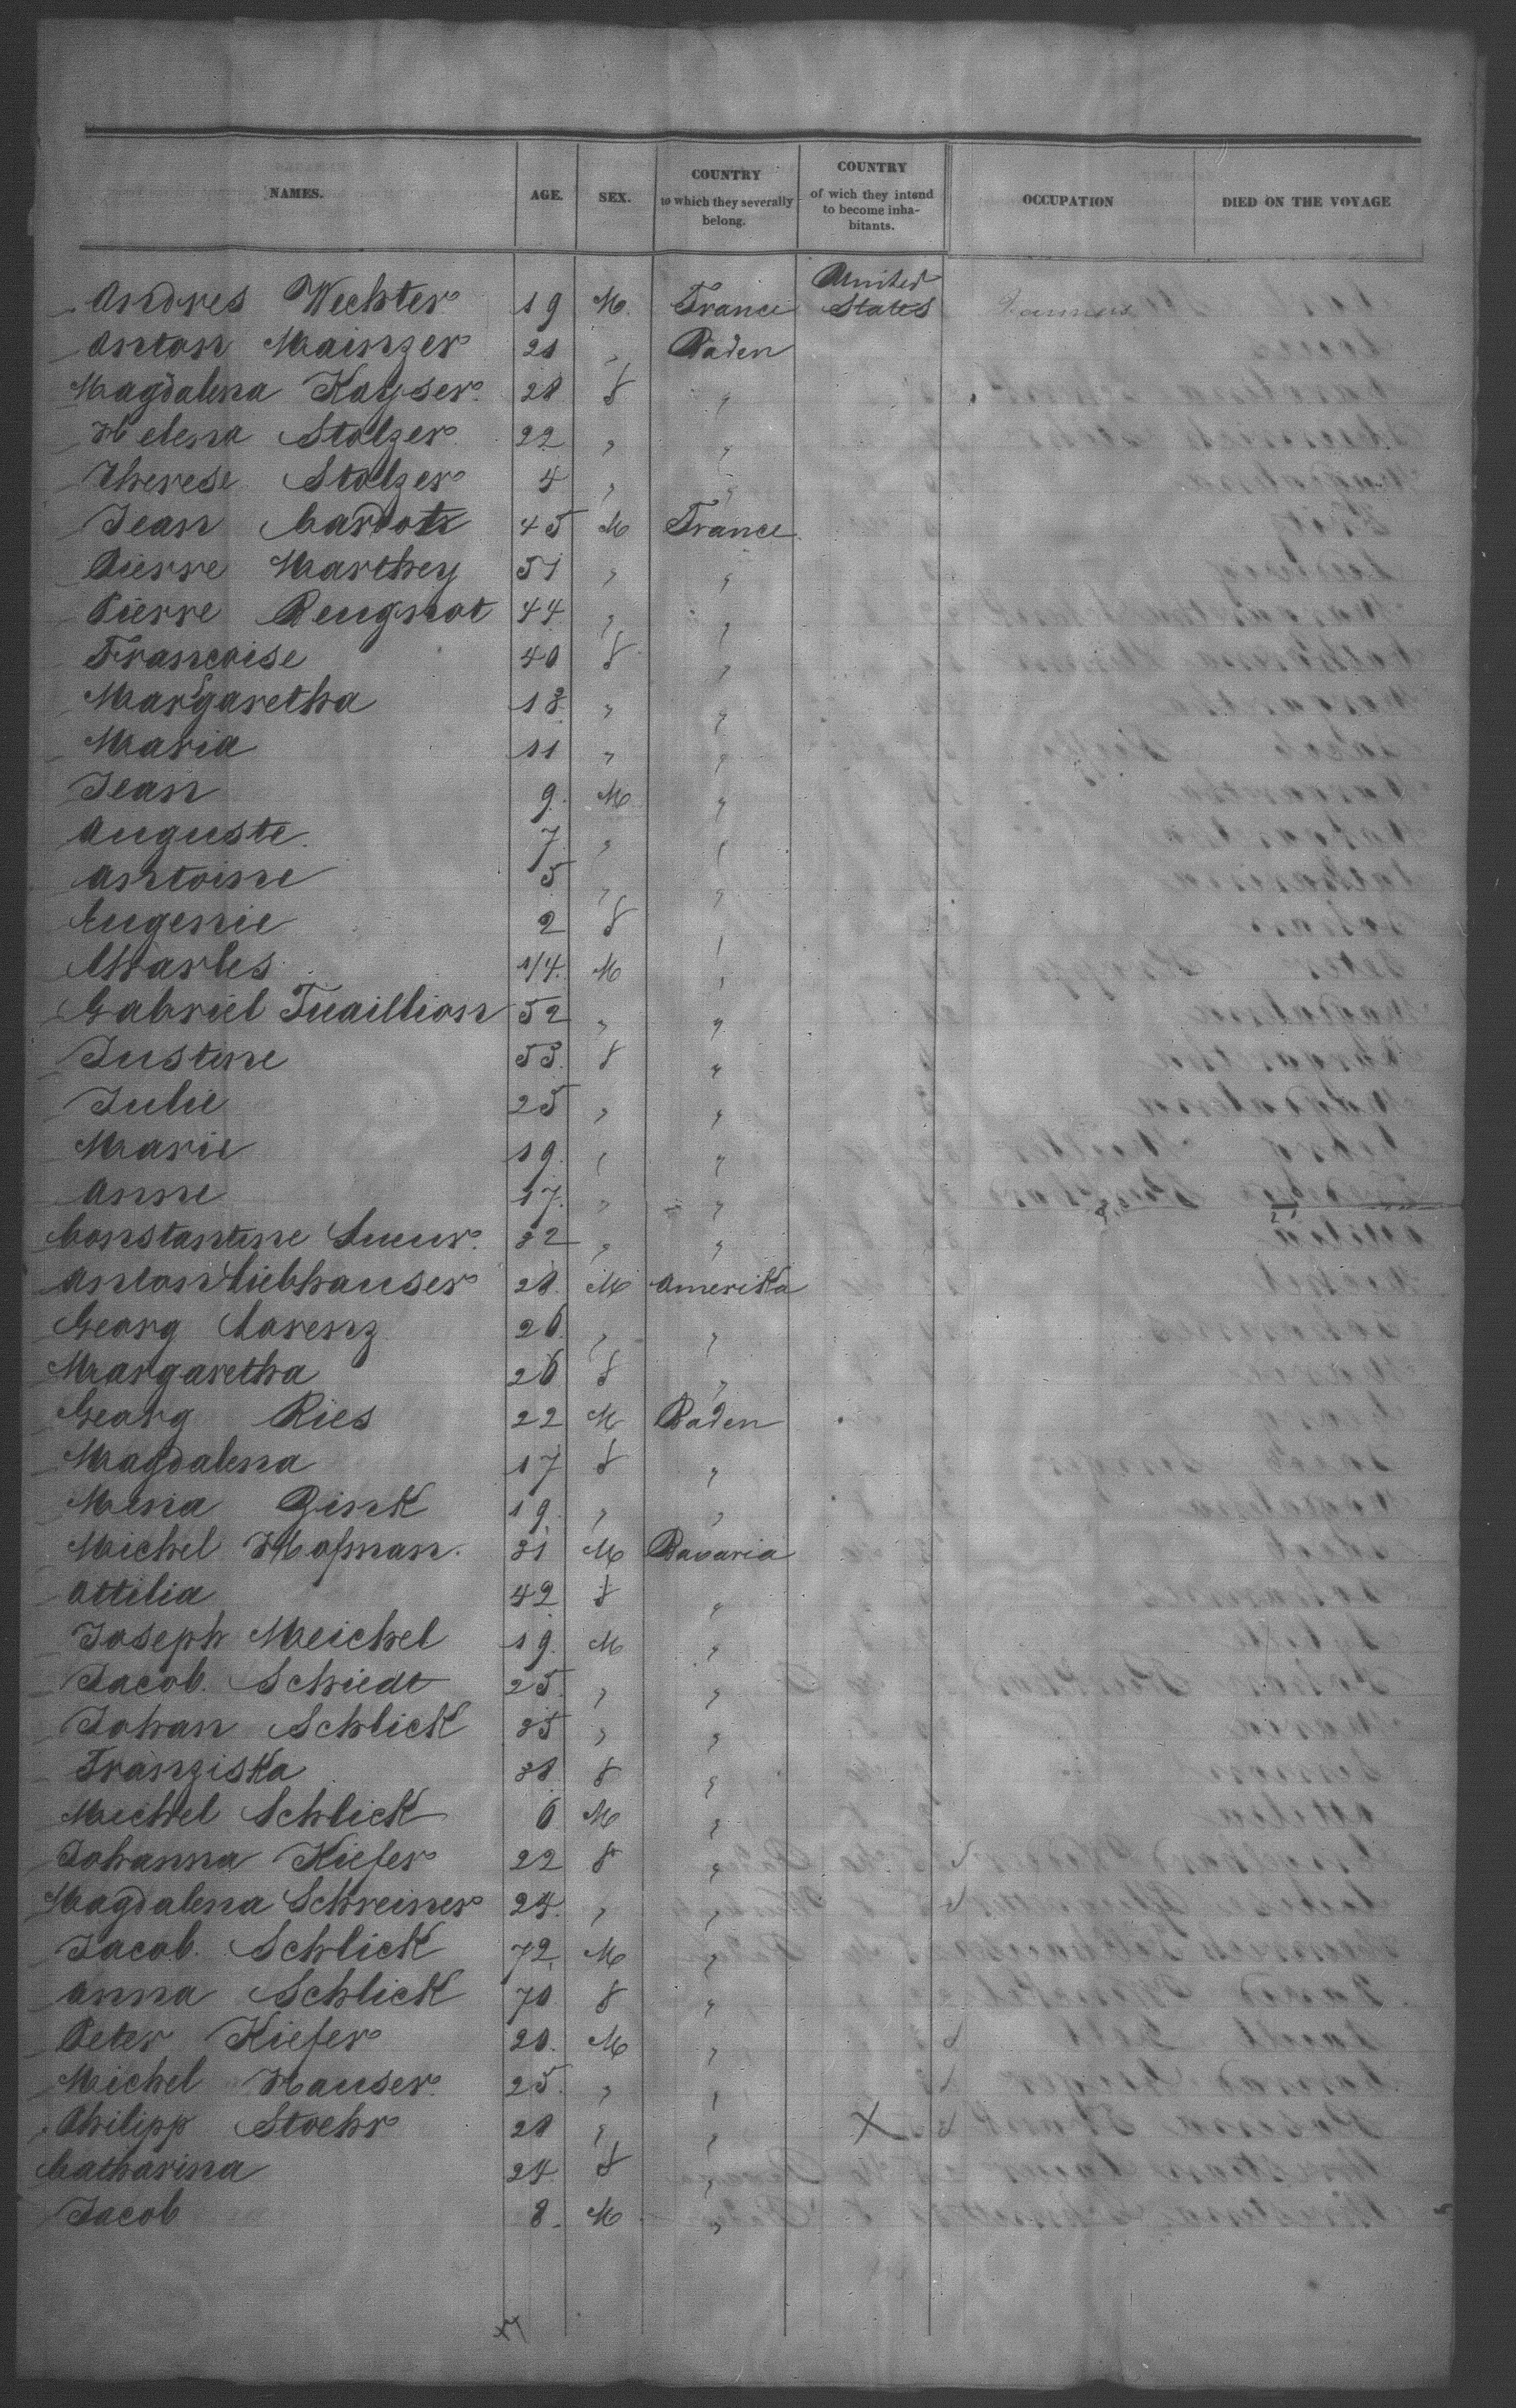 NAMES. AGE. SEX. COUNTRY to which they severally belong. COUNTRY of wich they intend to become inhabitants. OCCUPATION DIED ON THE VOYAGE
Andres Wechter 19 M. France United States
Anton Mainzer 21 " Baden
Magdalena Kayser 28 f "
Helena Stolzer 22 " "
Therese Stolzer 4 " "
Jean Cardot 45 M France
Pierre Marthey 51 " "
Pierre Reugnot 44 " "
Francoise 40 f "
Margaretha 13 " "
Maria 11 " "
Jean 9. M "
Auguste 7. " "
Antoine 5 " "
Eugenie 2 f "
Charles 1/4. M "
Gabriel Tuaillion 52 " "
Justine 53. f "
Julie 25 " "
Marie 19. " "
Anne 17. " "
Constantine 32 " "
Anton Liebhauser 28. M Amerika
Georg Lorenz 26. " "
Margaretha 26 f "
Georg Ries 22 M Baden
Magdalena 17 f "
Maria Zink 19. " "
Michel Hofman. 31 M Bavaria
Ottilia 42 f "
Joseph Meichel 19. M "
Jacob. Schiedt 25. " "
Johan Schlick 35 " "
Franziska 31 f "
Michel Schlick 6 M "
Johanna Kiefer 22 f "
Magdalena Schreiner 24. " "
Jacob. Schlick 72. M "
Anna Schlick 70 f "
Peter Kiefer 20. M "
Michel Hauser. 25. " "
Philipp Stoehr 28 " " X
Catharina 24 f "
Jacob 8. M "